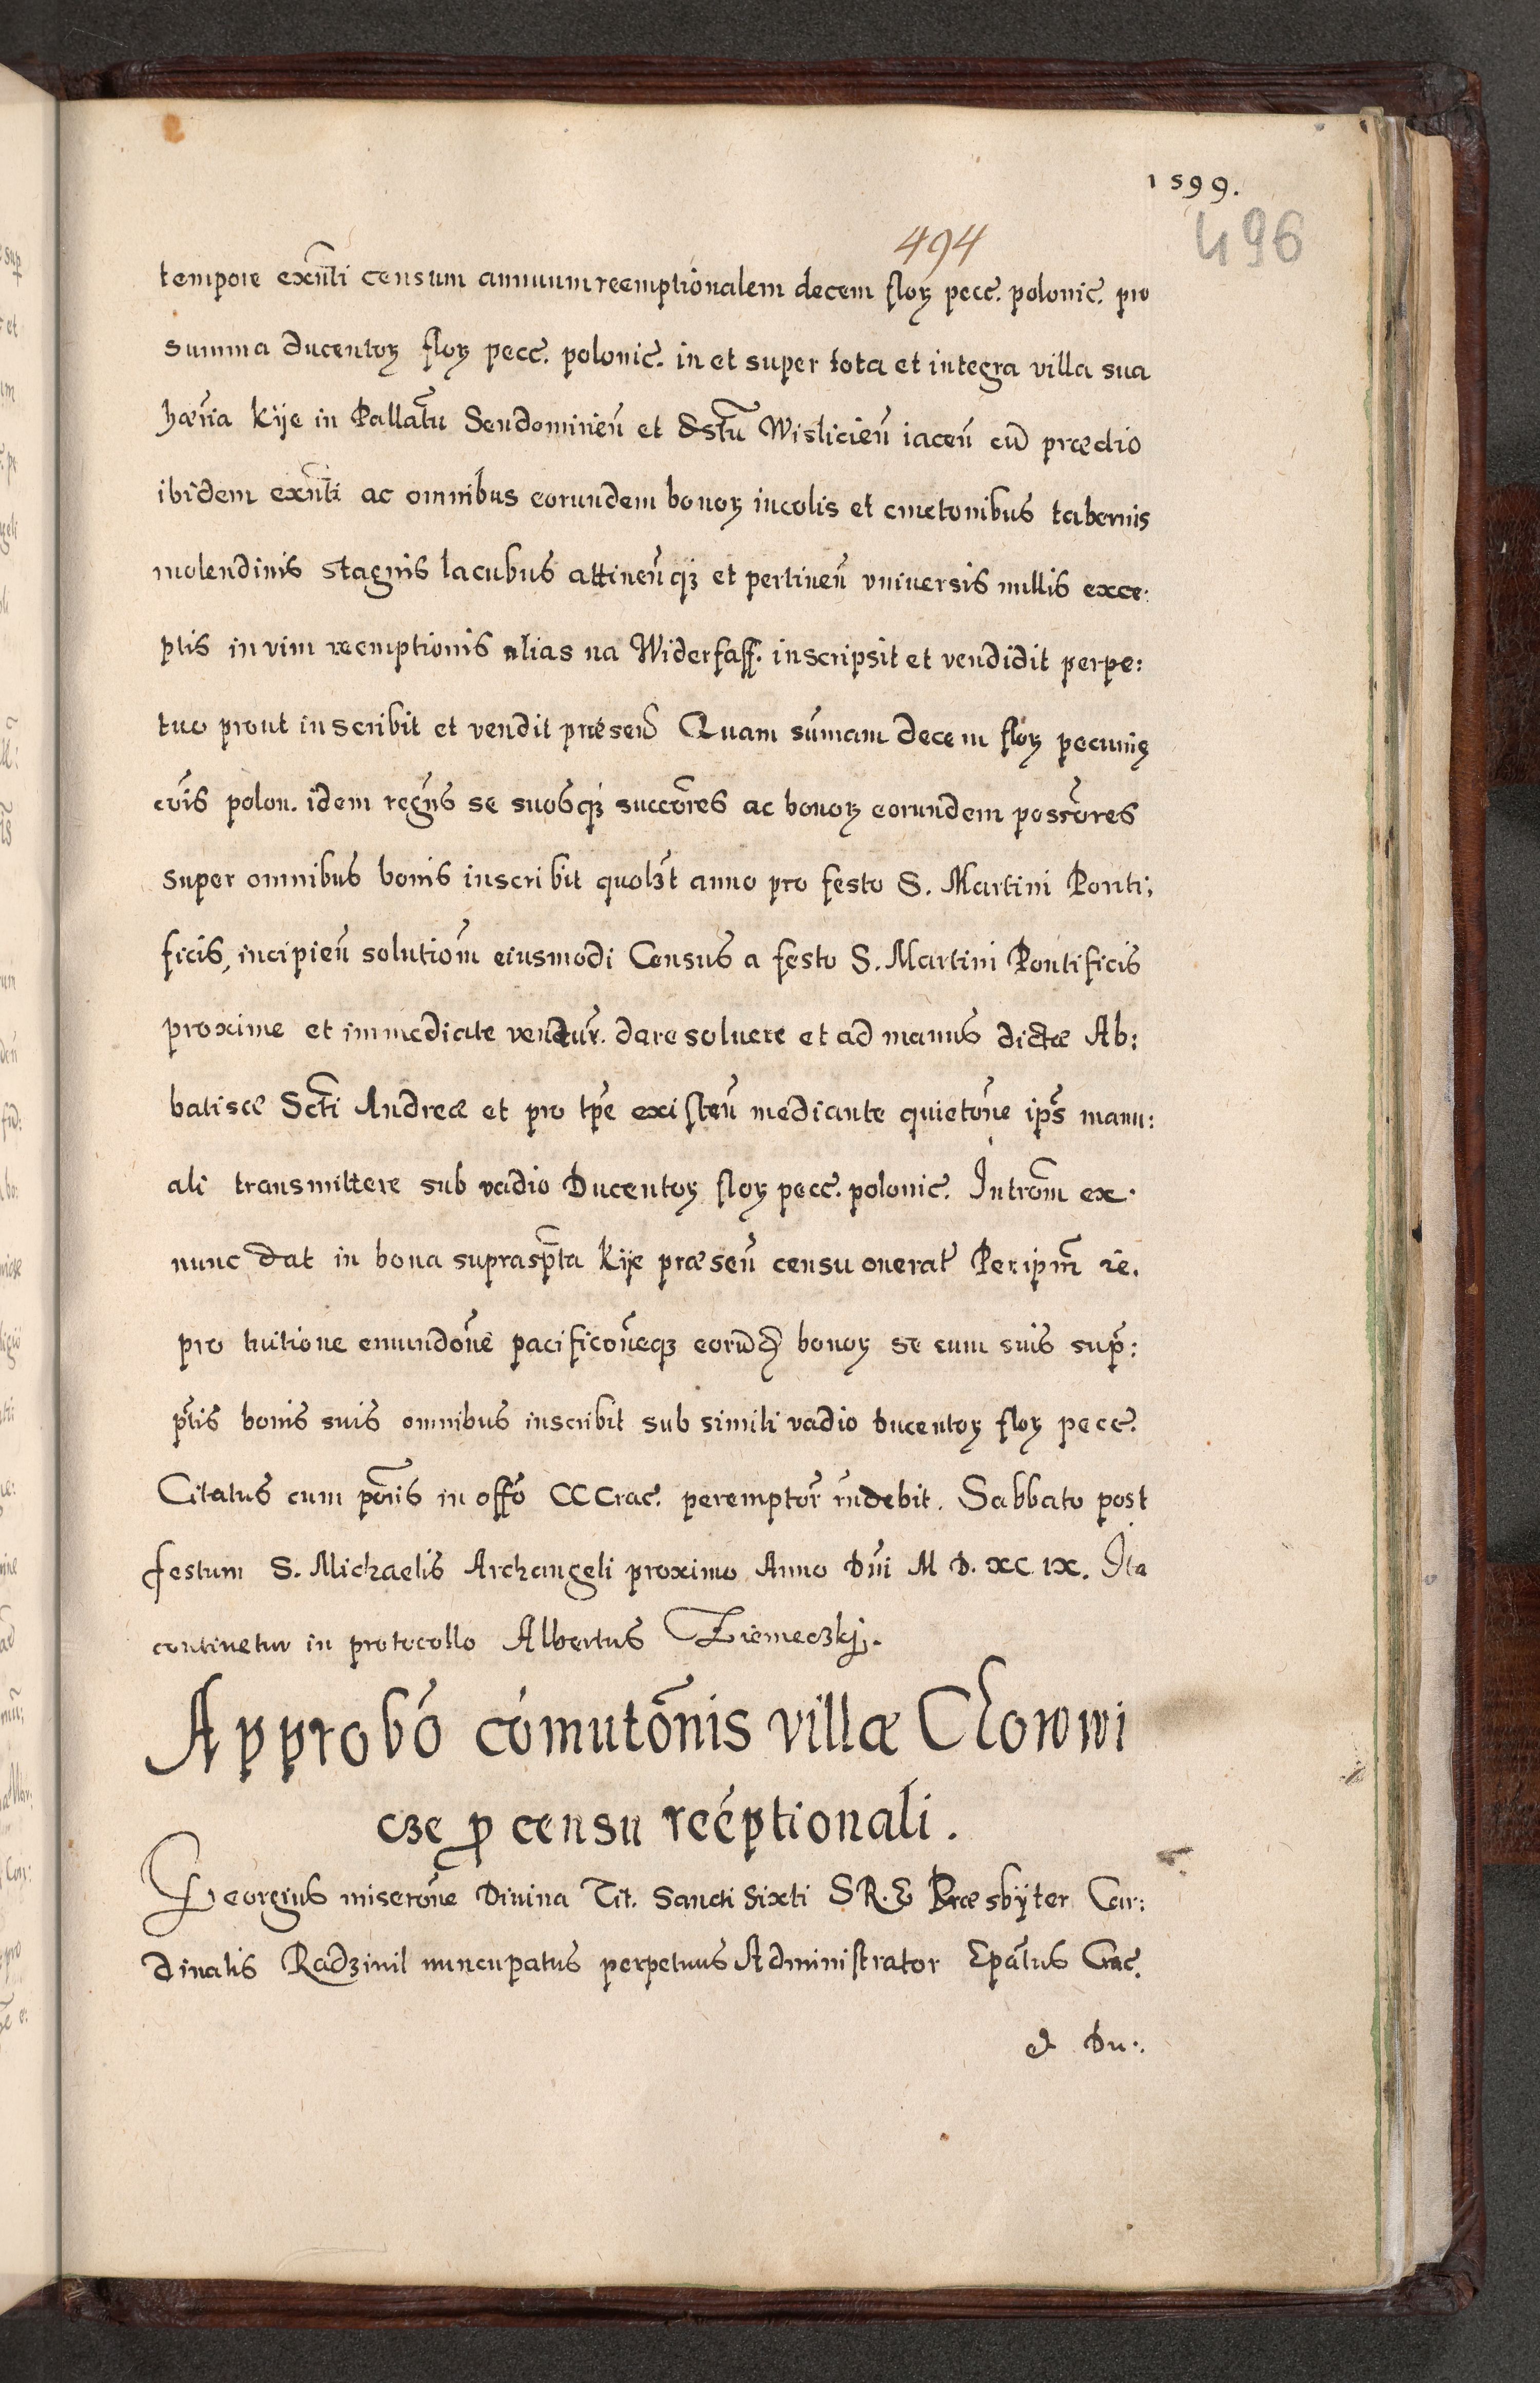 1599.
494
496
tempore exñti censum annuum reemptionalem decem floꝝ pecč. polonič. pro
summa ducentoꝝ floꝝ pecč. polonič. in et super tota et integra villa sua
hæria Kije in Pallatũ Sendomirieñ et dstũ Wislicieñ iaceñ cũ prædio
ibidem exñti ac omnibus eorundem bonoꝝ incolis et cmetonibus tabernis
molendinis stagnis lacubus attineñqȝ et pertineñ vniuersis nullis exce:
ptis in vim reemptionis alias na Widerfaff. inscripsit et vendidit perpe:
tuo prout inscribit et vendit præseñ Quam sum̃am decem floꝝ pecunię
cõis polon. idem regñs se suosqȝ succõres ac bonoꝝ eorundem possõres
super omnibus bonis inscribit quolȝt anno pro festo S. Martini Ponti:
ficis, incipieñ solutiom̃ eiusmodi Census a festo S. Martini Pontificis
proxime et immediate venđur. dare soluere et ad manus dictæ Ab:
batissæ Scti Andreæ et pro tpẽ existeñ mediante quietoñe ipš manu:
ali transmittere sub vadio Ducentoꝝ floꝝ pecč. polonič. Introm̃ ex.
nunc dat in bona suprasp̃ta Kije præseñ censu onerat̃ Per ipm̃ re.
pro tuitione emundoñe pacificoñeqȝ eorũd bonoꝝ se cum suis sup̃:
p̃tis bonis suis omnibus inscribit sub simili vadio ducentoꝝ floꝝ pecč.
Citatus cum põris in offõ CC Crač. peremptor̃ rñdebit. Sabbato post
festum S. Michaelis Archangeli proximo Anno Dñi M D. XC IX. Ita
continetur in protocollo Albertus Ziemeczkj.
Approbõ cõmutõnis villæ Chorwi
cze ꝓ censu reẽptionali.
Georgius miseroñe Divina Tit. Sancti Sixti S R. E Præsbÿter Car:
dinalis Radziwil nuncupatus perpetuus Administrator Epãtus Crač.
et Du: